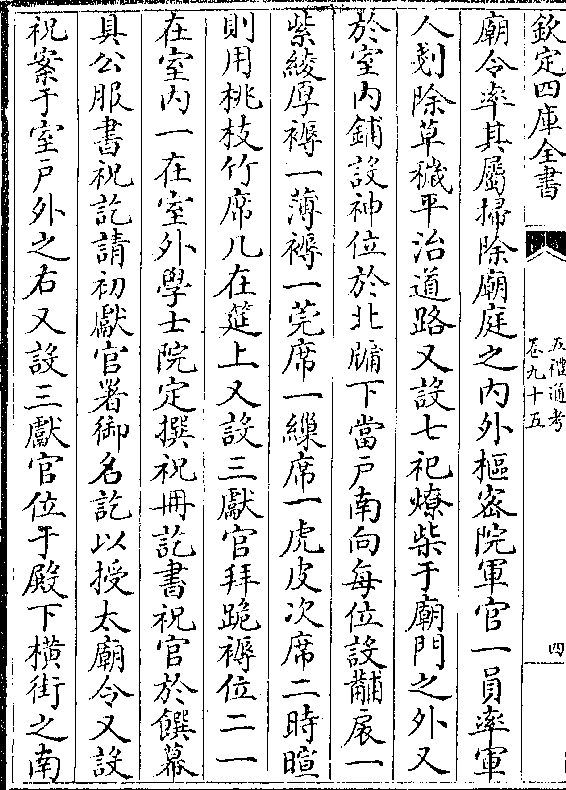 欽定四庫全書
五禮通考
卷九十五
四
廟令率其屬掃除廟庭之内外樞宻院軍官一員率軍
人剗除草穢平治道路又設七祀燎柴于廟門之外又
於室内鋪設神位於北牖下當戶南向每位設黼扆一
紫綾厚褥一薄褥一莞席一繅席一虎皮次席二時暄
則用桃枝竹席几在筵上又設三獻官拜跪褥位二一
在室内一在室外學士院定撰祝冊訖書祝官於饌幕
具公服書祝訖請初獻官署御名訖以授太廟令又設
祝案于室戶外之右又設三獻官位于殿下横街之南